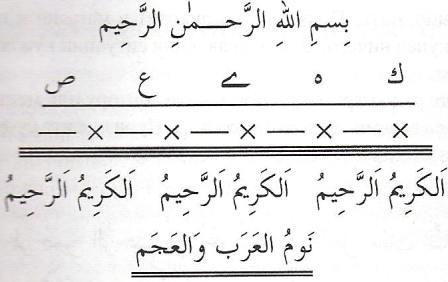 بِسْمِ اللهِ الرَّحْـمٰنِ الرَّحِيم
ك ه ے ع ص
× — × — × — × — ×
اَلكَرِيمُ اَلرَّحِيمُ اَلكَرِيمُ اَلرَّحِيمُ اَلكَرِيمُ اَلرَّحِيمُ
نَومُ العَرَب وَالعَجَم